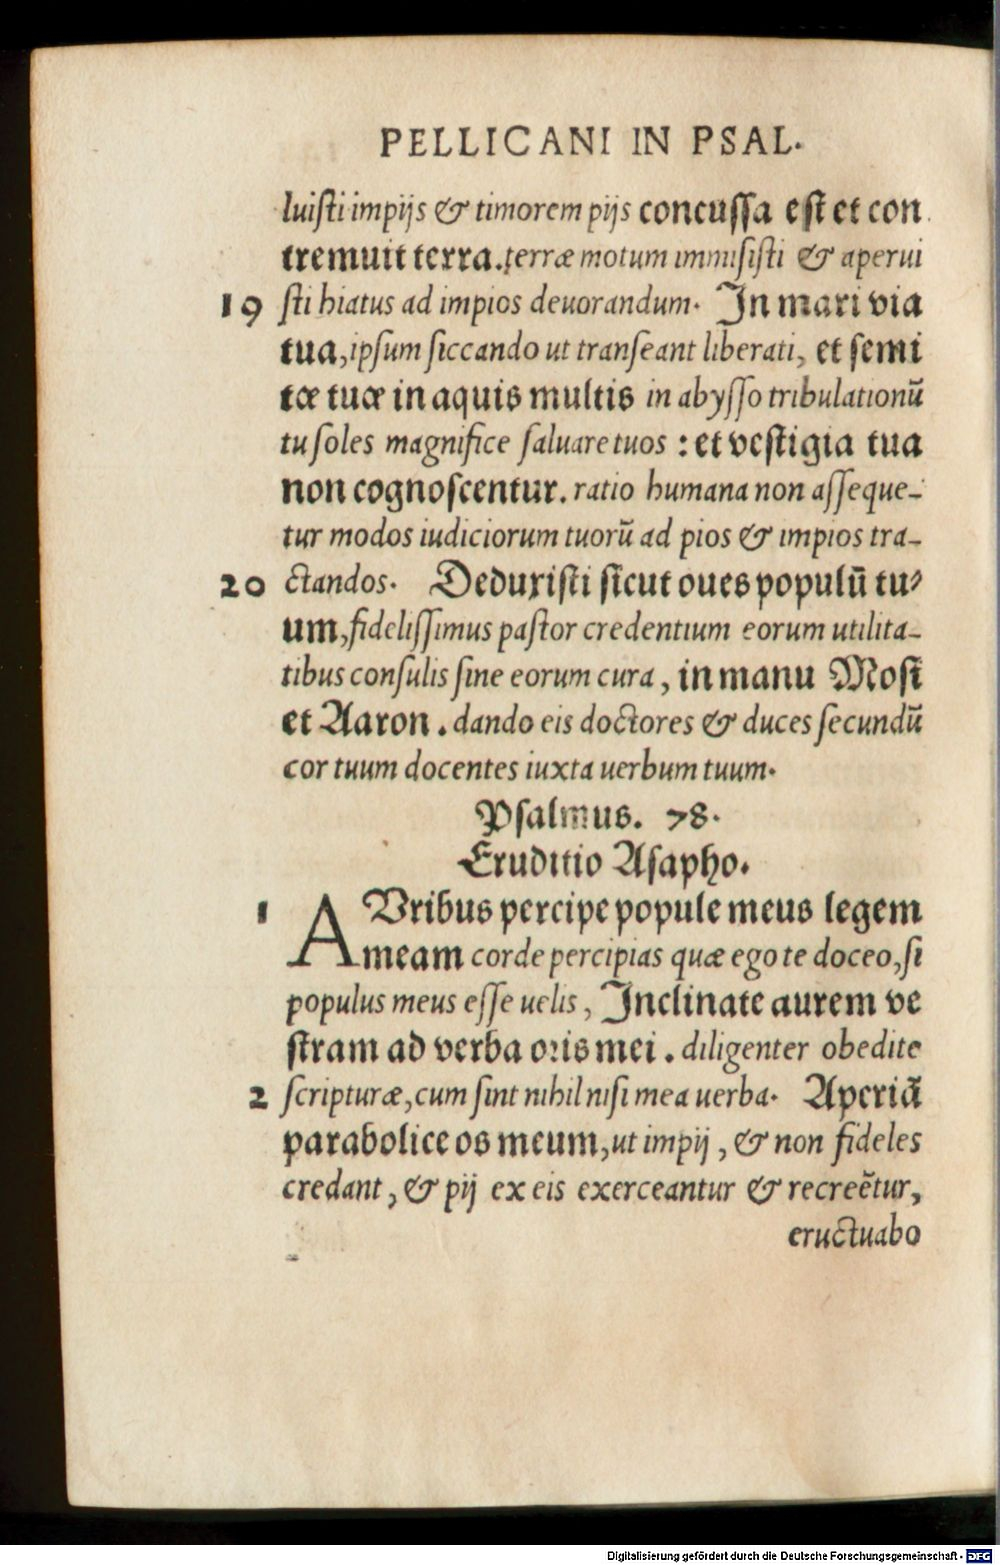 PELLICANI IN PSAL.
luisti impijs & timorem pijs concussa est et con
tremuit terra. terræ motum immisisti & aperui
19 sti hiatus ad impios deuorandum. In mari via
tua, ipsum siccando ut transeant liberati, et semi
tæ tuæ in aquis multis in abysso tribulationũ
tu soles magnifice saluare tuos : et vestigia tua
non cognoscentur. ratio humana non asseque-
tur modos iudiciorum tuorũ ad pios & impios tra-
20 ctandos. Deduxisti sicut oues populũ tu-
um, fidelissimus pastor credentium eorum utilita-
tibus consulis sine eorum cura, in manu Mosi
et Aaron. dando eis doctores & duces secundũ
cor tuum docentes iuxta uerbum tuum.
Psalmus. 78.
Eruditio Asapho.
1 AVribus percipe popule meus legem
meam corde percipias quæ ego te doceo, si
populus meus esse uelis, Inclinate aurem ve
stram ad verba oris mei. diligenter obedite
2 scripturæ, cum sint nihil nisi mea uerba. Aperiã
parabolice os meum, ut impij, & non fideles
credant, & pij ex eis exerceantur & recreẽtur,
eructuabo
Digitalisierung gefördert durch die Deutsche Forschungsgemeinschaft - DFG